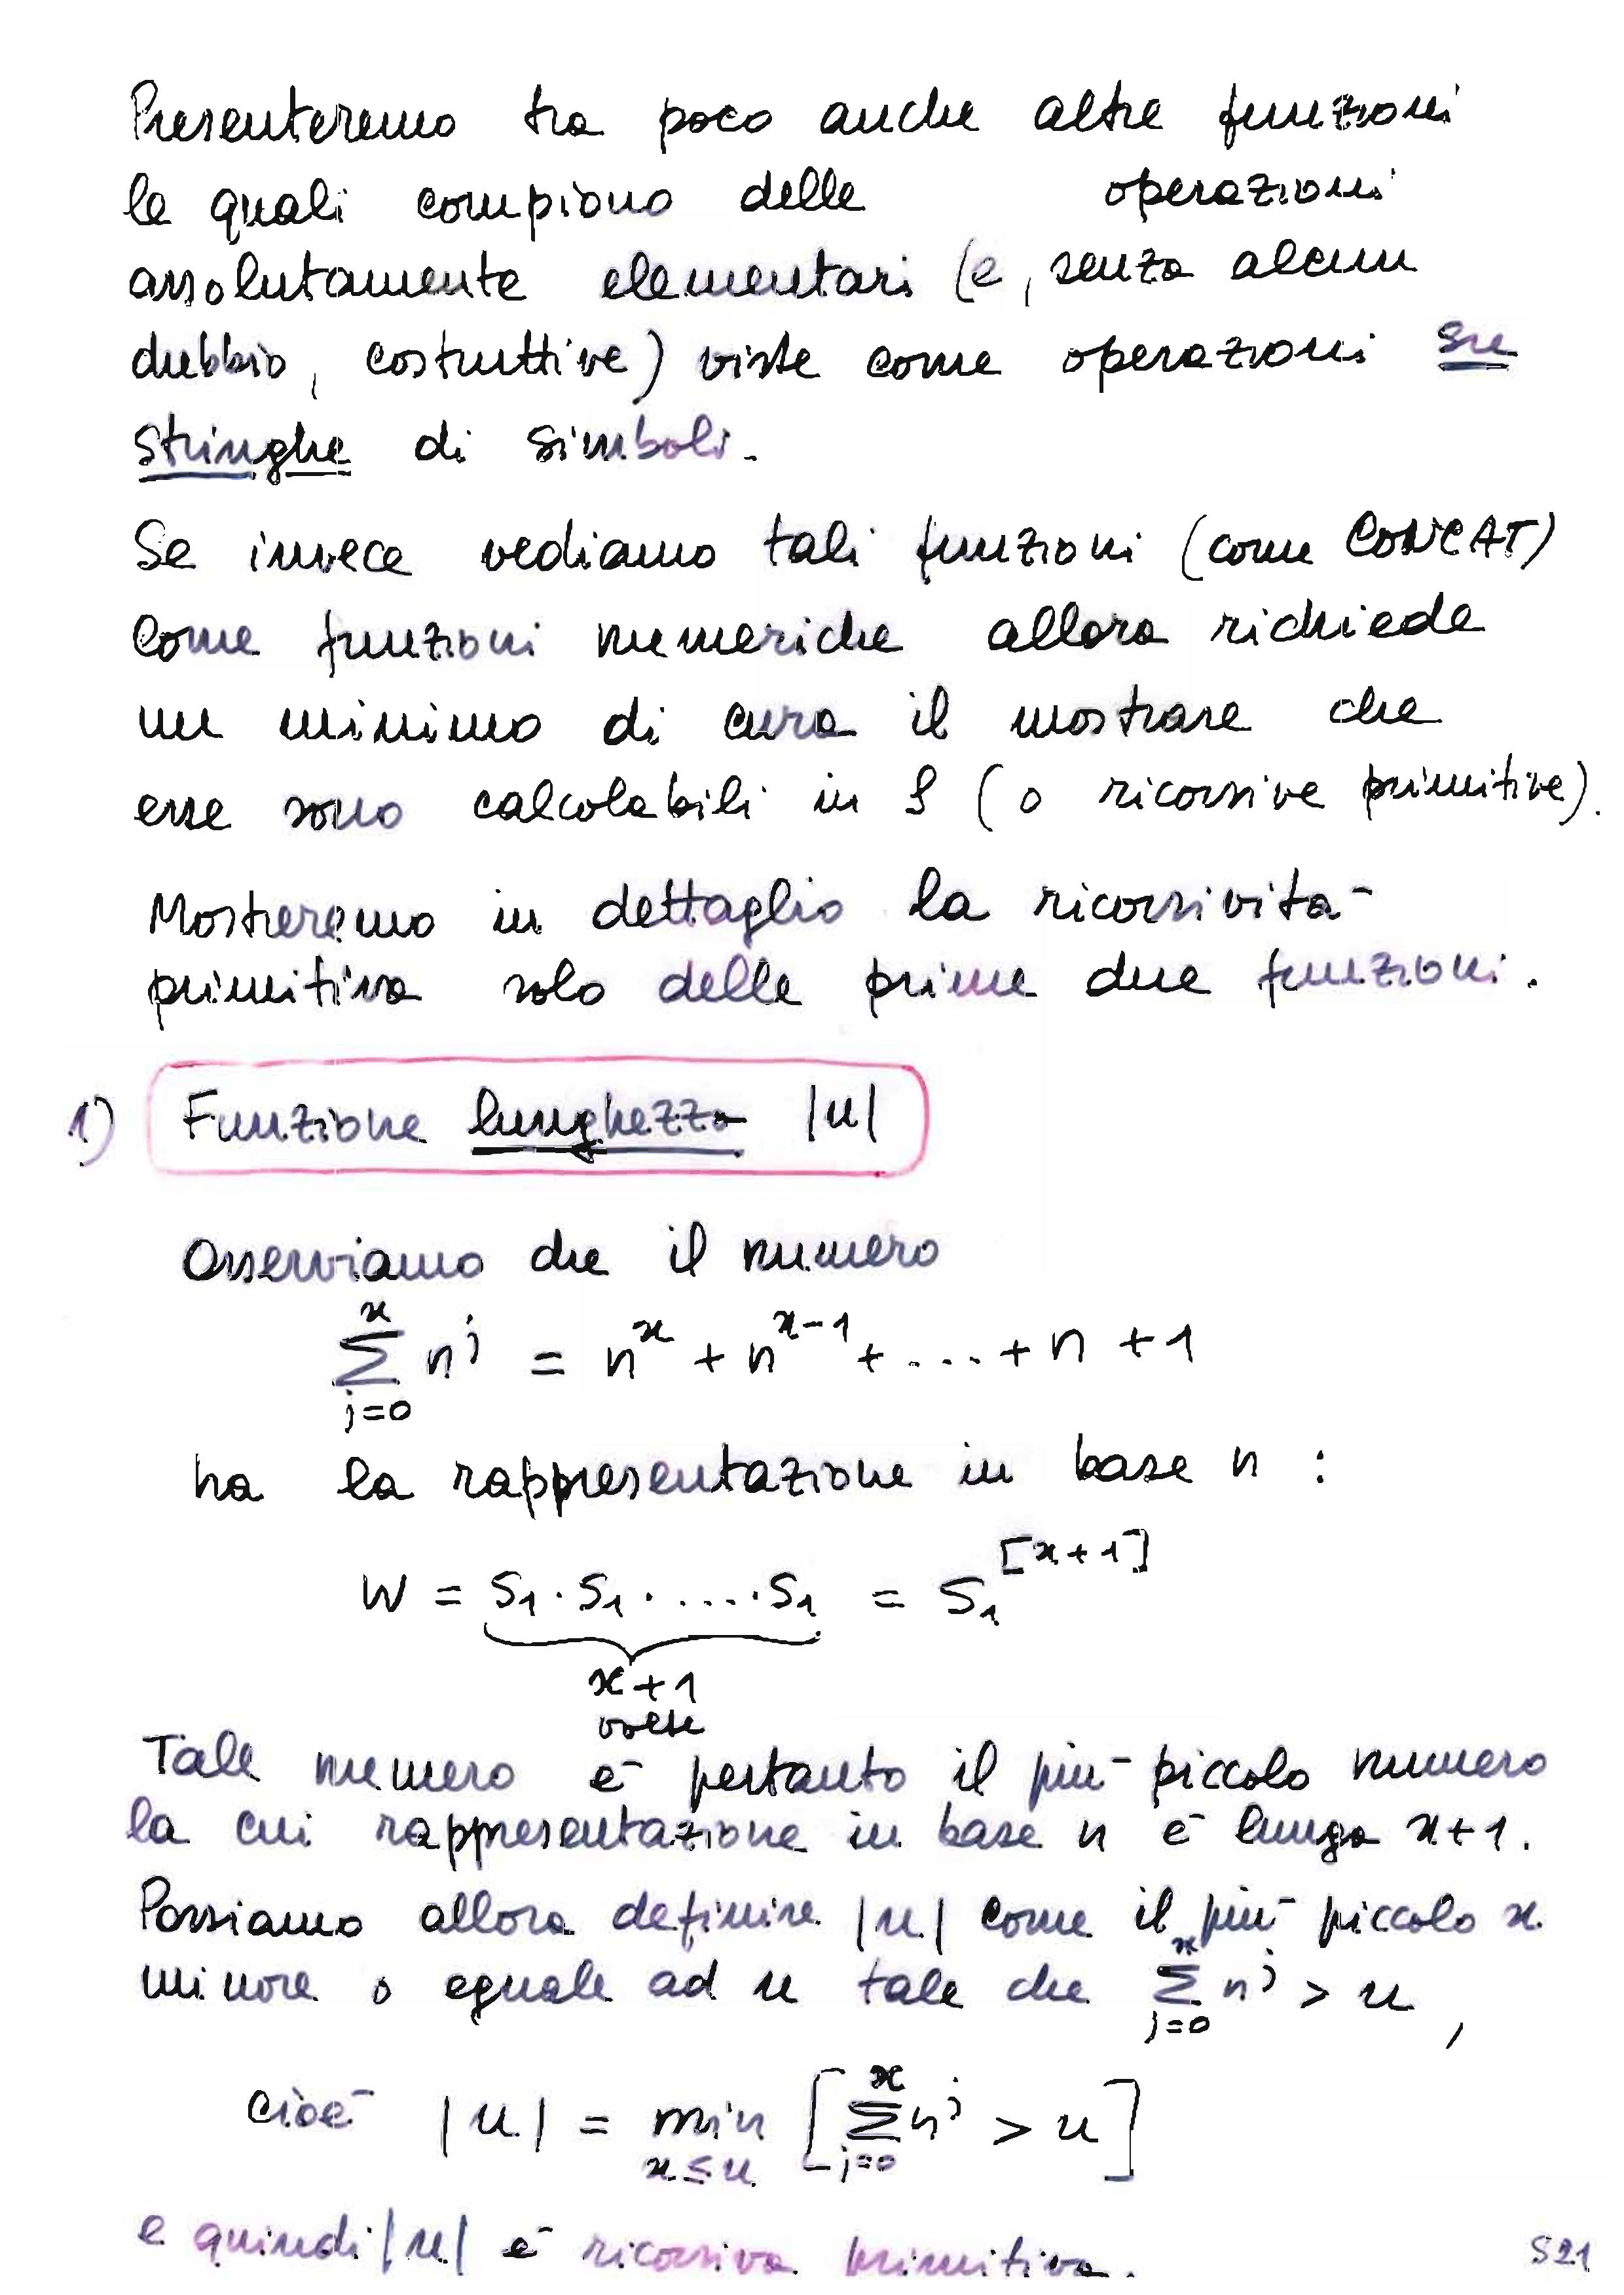 Presenteremo tra poco anche altre funzioni
le quali compiono delle operazioni
assolutamente elementari (e, senza alcun
dubbio, costruttive) viste come operazioni su
stringhe di simboli.
Se invece vediamo tali funzioni (come CONCAT)
come funzioni numeriche allora richiede
un minimo di cura il mostrare che
esse sono calcolabili in S (o ricorsive primitive).
Mostreremo in dettaglio la ricorsività
primitiva solo delle prime due funzioni.
1) Funzione lunghezza |u|
Osserviamo che il numero
∑_{j=0}^{x} n^j = n^x + n^{x-1} + .... + n + 1
ha la rappresentazione in base n :
W = S₁·S₁·.....·S₁ = S₁^{[x+1]}
x+1
volte
Tale numero è pertanto il più piccolo numero
la cui rappresentazione in base n è lunga x+1.
Possiamo allora definire |u| come il più piccolo x
minore o eguale ad u tale che ∑_{j=0}^{x} n^j > u ,
cioè |u| = min_{x≤u} [∑_{j=0}^{x} n^j > u]
e quindi |u| è ricorsiva primitiva.
S21